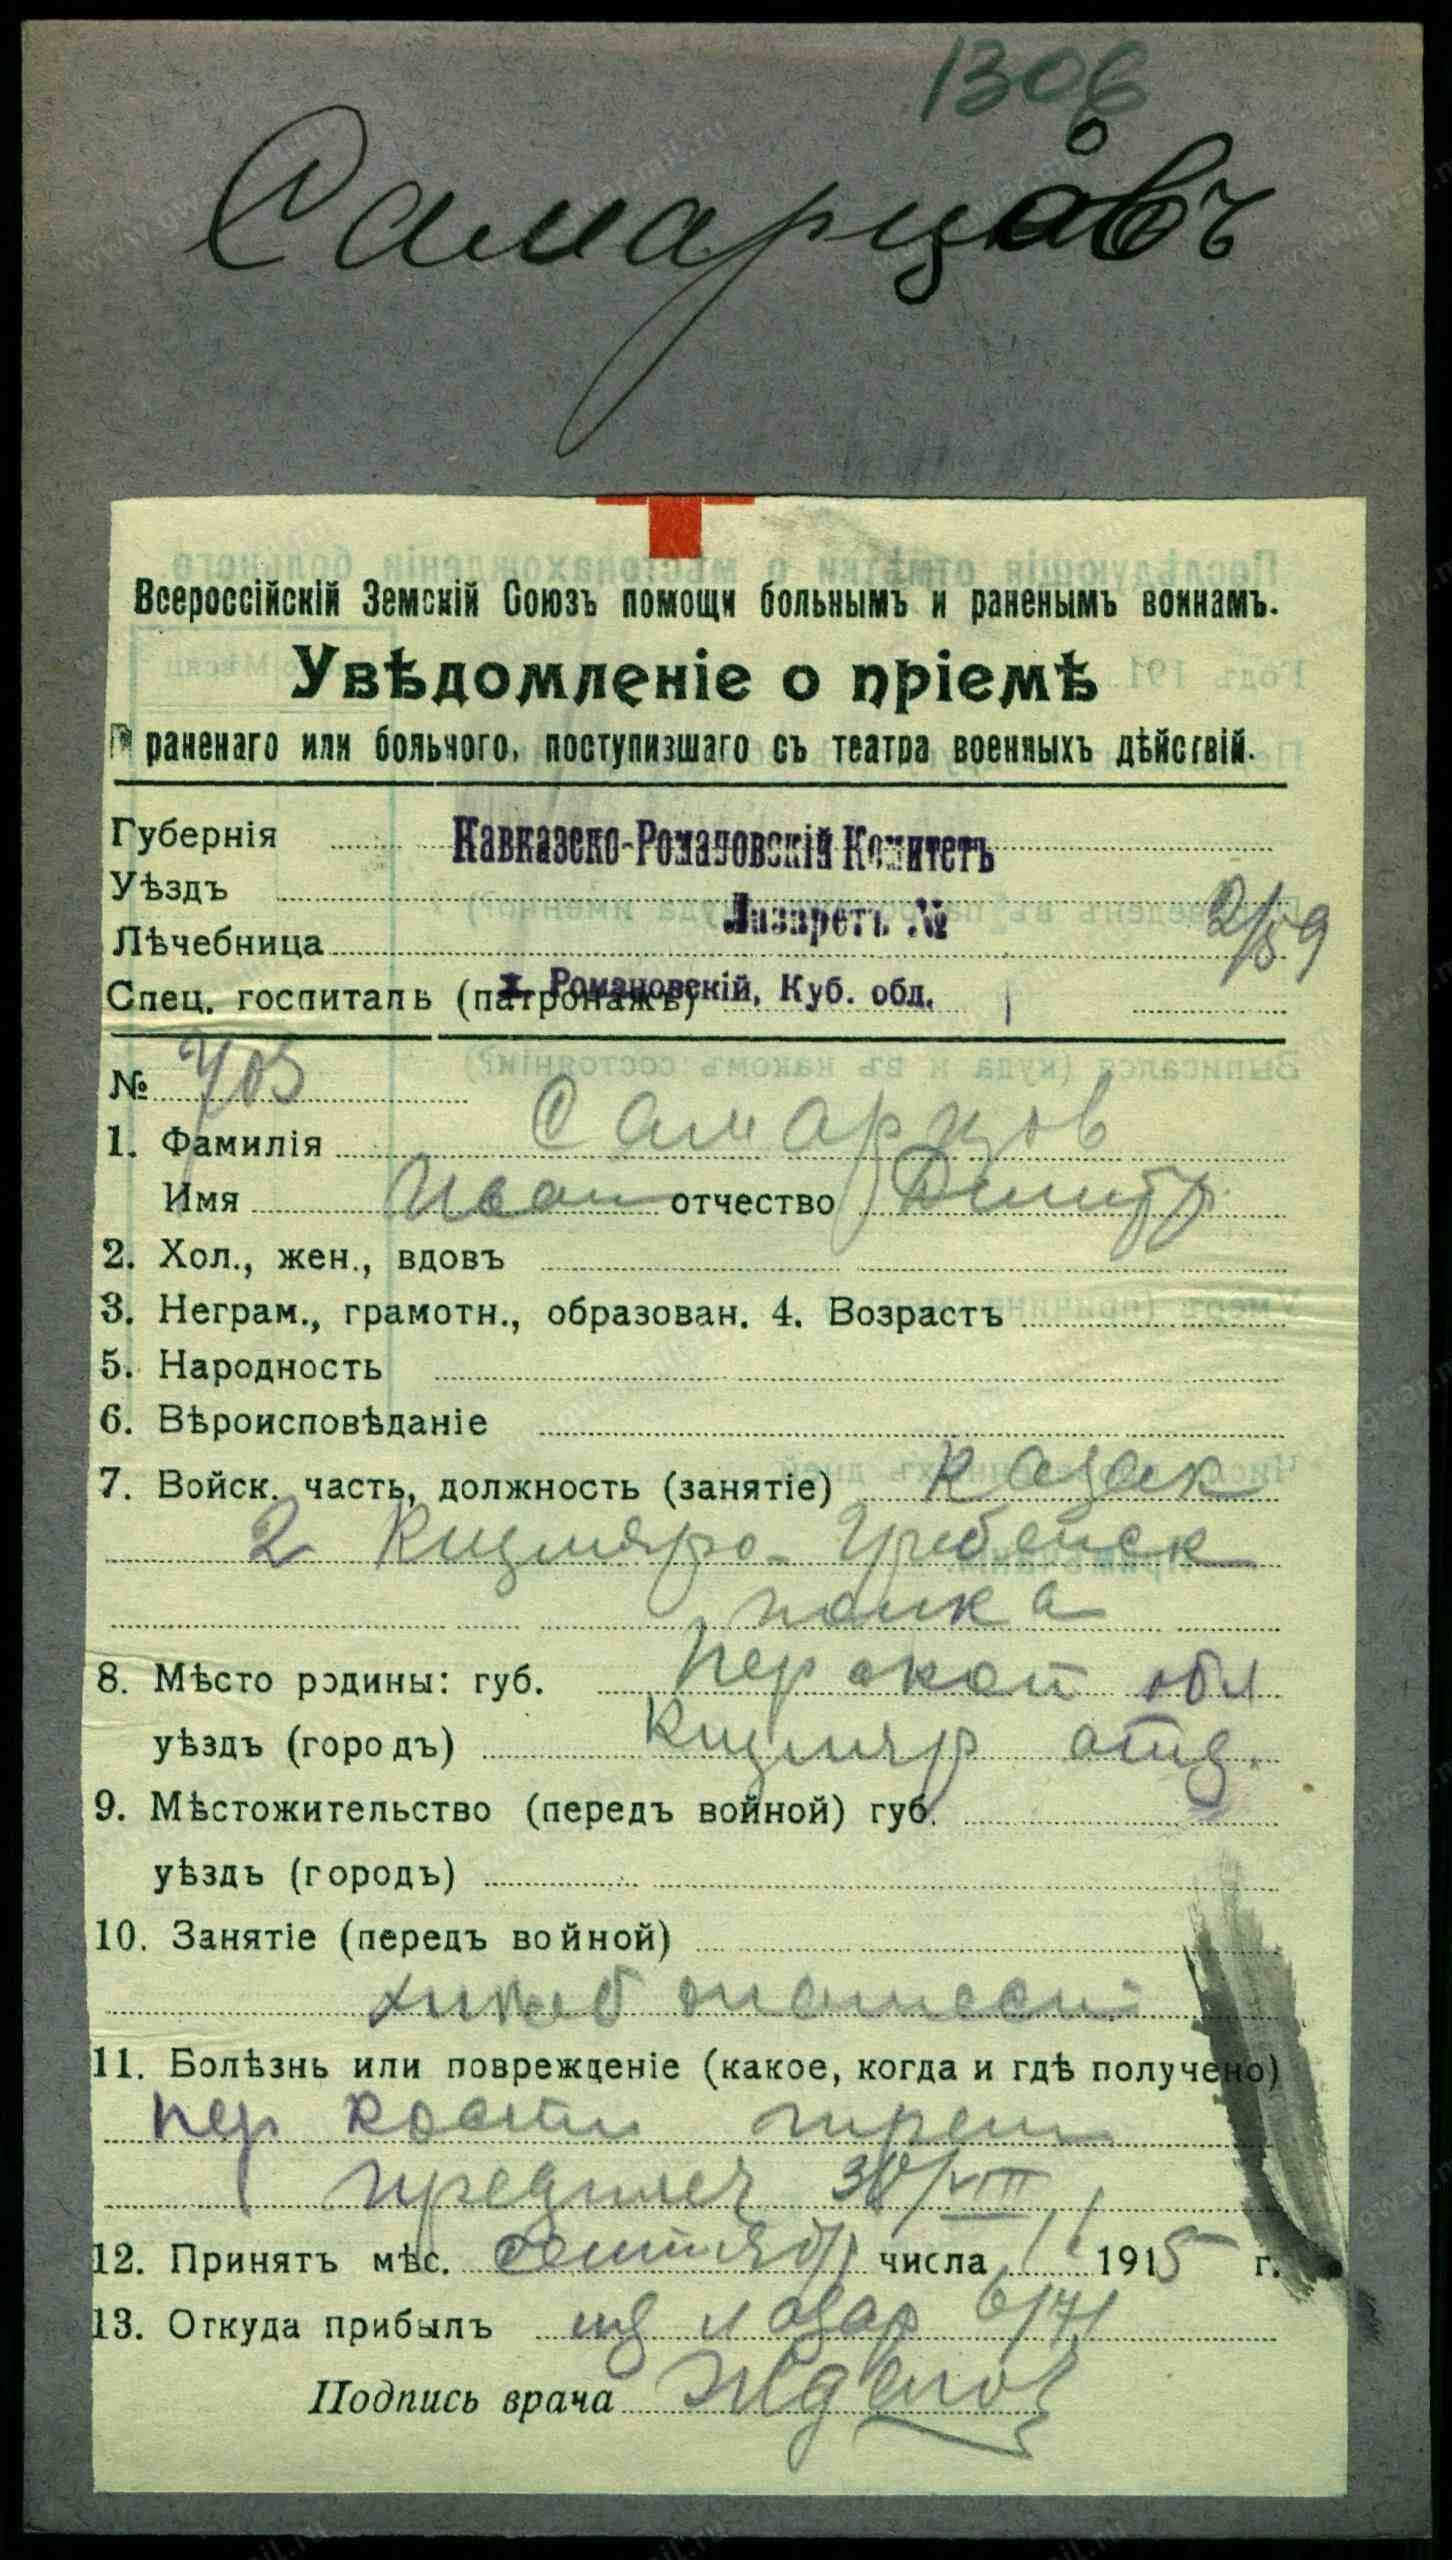 1306
Самарцовъ
Всероссійскій Земскій Союзъ помощи больнымъ и раненымъ воинамъ.
Увѣдомленіе о пріемѣ
раненаго или больного, поступившаго съ театра военныхъ дѣйствій.
Губернія
Кавказско-Романовскій Комитетъ
Уѣздъ
Лазаретъ № 2/59
Лѣчебница
х. Романовскій, Куб. обл.
Спец. госпиталь (патронажъ)
№ 703
1. Фамилія Самарцов
Имя Иван отчество Дмитр
2. Хол., жен., вдовъ
3. Неграм., грамотн., образован. 4. Возрастъ
5. Народность
6. Вѣроисповѣданіе
7. Войск. часть, должность (занятіе) казак
2 Кизляро-Гребенск
полка
8. Мѣсто родины: губ. Терской обл
уѣздъ (городъ) Кизляр отд.
9. Мѣстожительство (передъ войной) губ.
уѣздъ (городъ)
10. Занятіе (передъ войной)
11. Болѣзнь или поврежденіе (какое, когда и гдѣ получено)
пер кости
предплеч 30/VIII
12. Принятъ мѣс. сентябр числа 1 1915 г.
13. Откуда прибылъ из лазар
Подпись врача